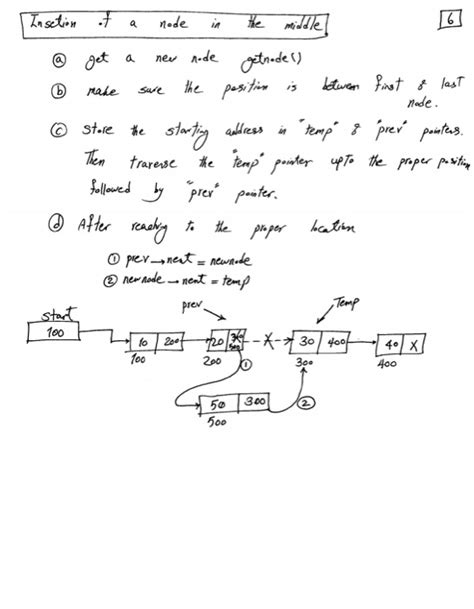 Insetion of a node in the middle
6
(a) get a new node getnode()
(b) make sure the position is between first & last
node.
(c) store the starting address in "temp" & "prev" pointers.
Then traverse the "temp" pointer upto the proper position
followed by "prev" pointer.
(d) After reaching to the proper location
(1) prev → next = newnode
(2) newnode → next = temp
prev Temp
start
100
10 200 20 300 500 X 30 400 40 X
100 200 (1) 300 400
50 300 (2)
500